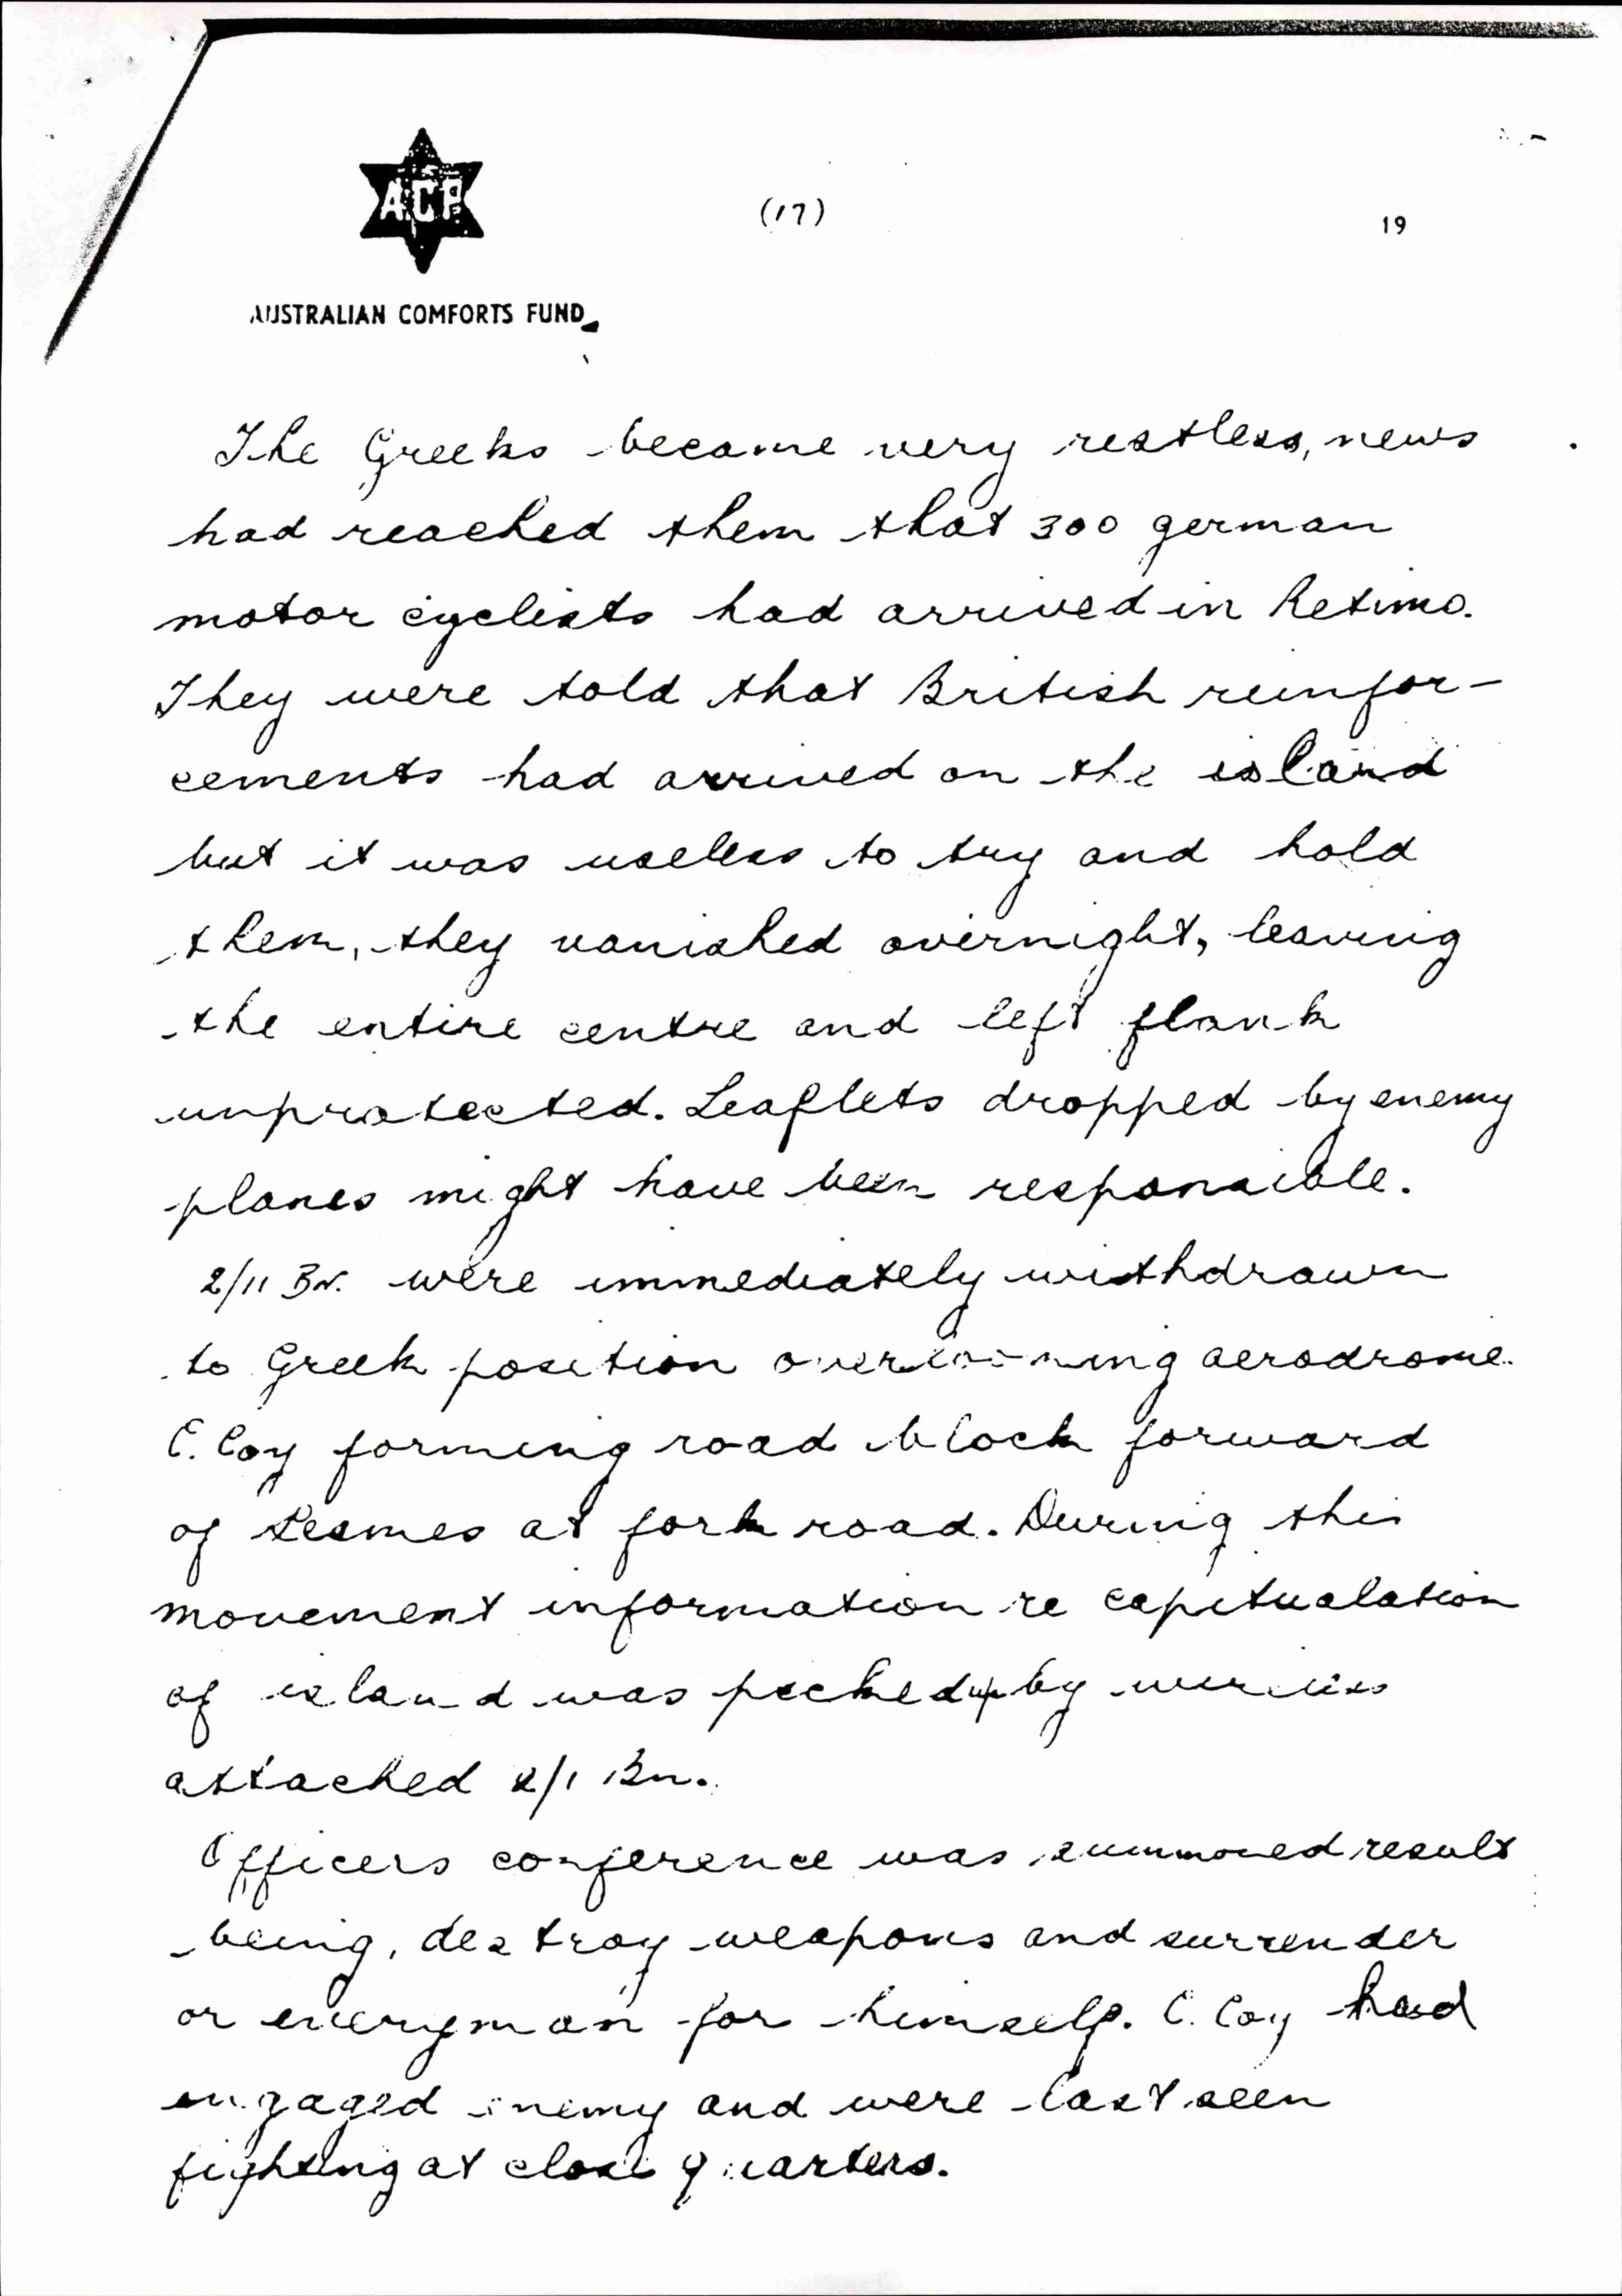 A.C.F.
(17)
19
AUSTRALIAN COMFORTS FUND
The Greeks became very restless, news
had reached them that 300 german
motor cyclists had arrived in Retimo.
They were told that British reinfor-
cements had arrived on the island
but it was useless to try and hold
them, they vanished overnight, leaving
the entire centre and left flank
unprotected. Leaflets dropped by enemy
planes might have been responsible.
2/11 Bn. were immediately withdrawn
to Greek position overlooking aerodrome.
C. Coy forming road block forward
of at fork road. During this
movement information re capitualation
of island was picked up by wireless
attached 2/1 Bn.
Officers conference was summoned result
being, destroy weapons and surrender
or everyman for himself. C. Coy had
engaged enemy and were last seen
fighting at close quarters.